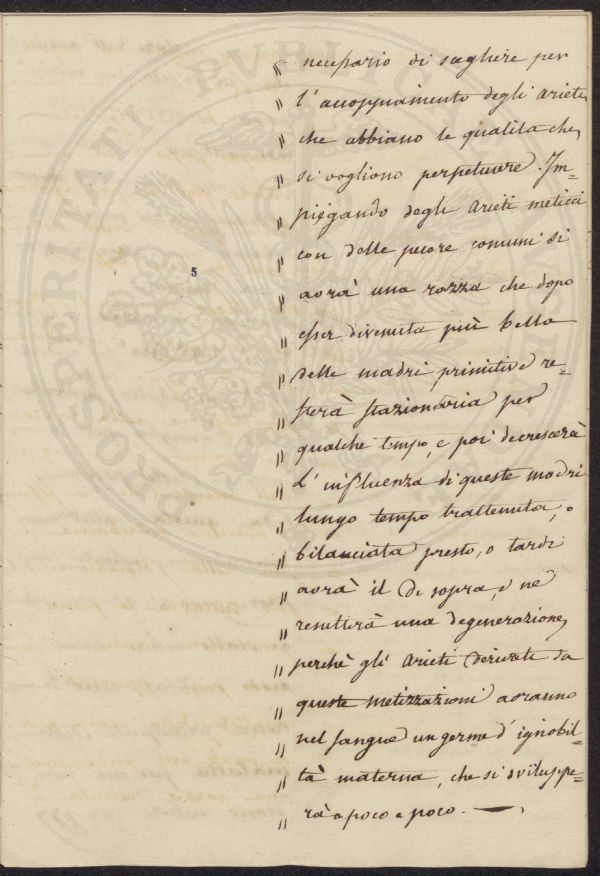 " necessario di scegliere per
" l'accoppiamento degli arieti
" che abbiano le qualità che
" si vogliono perpetuere. Im=
" piegando degli arieti meticci
" con delle pecore comuni si
" avrà una razza che dopo
" esser divenuta più bella
" delle madri primitive re=
" sterà stazionaria per
" qualche tempo, e poi decrescerà
" L'influenza di queste madri
" lungo tempo trattenuta, o
" bilanciata presto, o tardi
" avrà il di sopra, e ne
" resulterà una degenerazione,
" perchè gli Arieti derivati da
" queste metizzazioni avranno
" nel sangue un germe d'ignobil=
" tà materna, che si sviluppe=
" rà a poco a poco. —
5
PROSPERITATI PVBLICAE